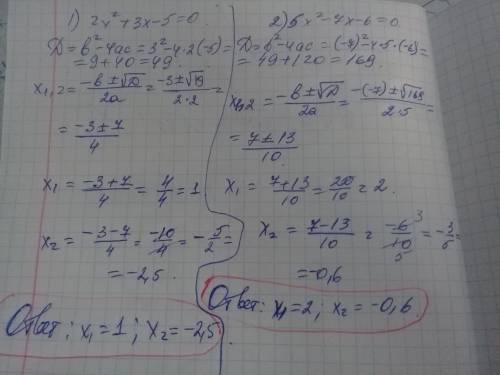 1) 2x² + 3x - 5 = 0.
D = b² - 4ac = 3² - 4·2·(-5) =
= 9 + 40 = 49.
x₁,₂ = (-b ± √D)/2a = (-3 ± √49)/(2·2) =
= (-3 ± 7)/4
x₁ = (-3 + 7)/4 = 4/4 = 1
x₂ = (-3 - 7)/4 = -10/4 = -5/2 =
= -2,5.
Ответ: x₁ = 1; x₂ = -2,5
2) 5x² - 7x - 6 = 0
D = b² - 4ac = (-7)² - 4·5·(-6) =
= 49 + 120 = 169.
x₁,₂ = (-b ± √D)/2a = (-(-7) ± √169)/(2·5) =
= (7 ± 13)/10
x₁ = (7 + 13)/10 = 20/10 = 2.
x₂ = (7 - 13)/10 = -6³/10₅ = -3/5 =
= -0,6
Ответ: x₁ = 2; x₂ = -0,6.